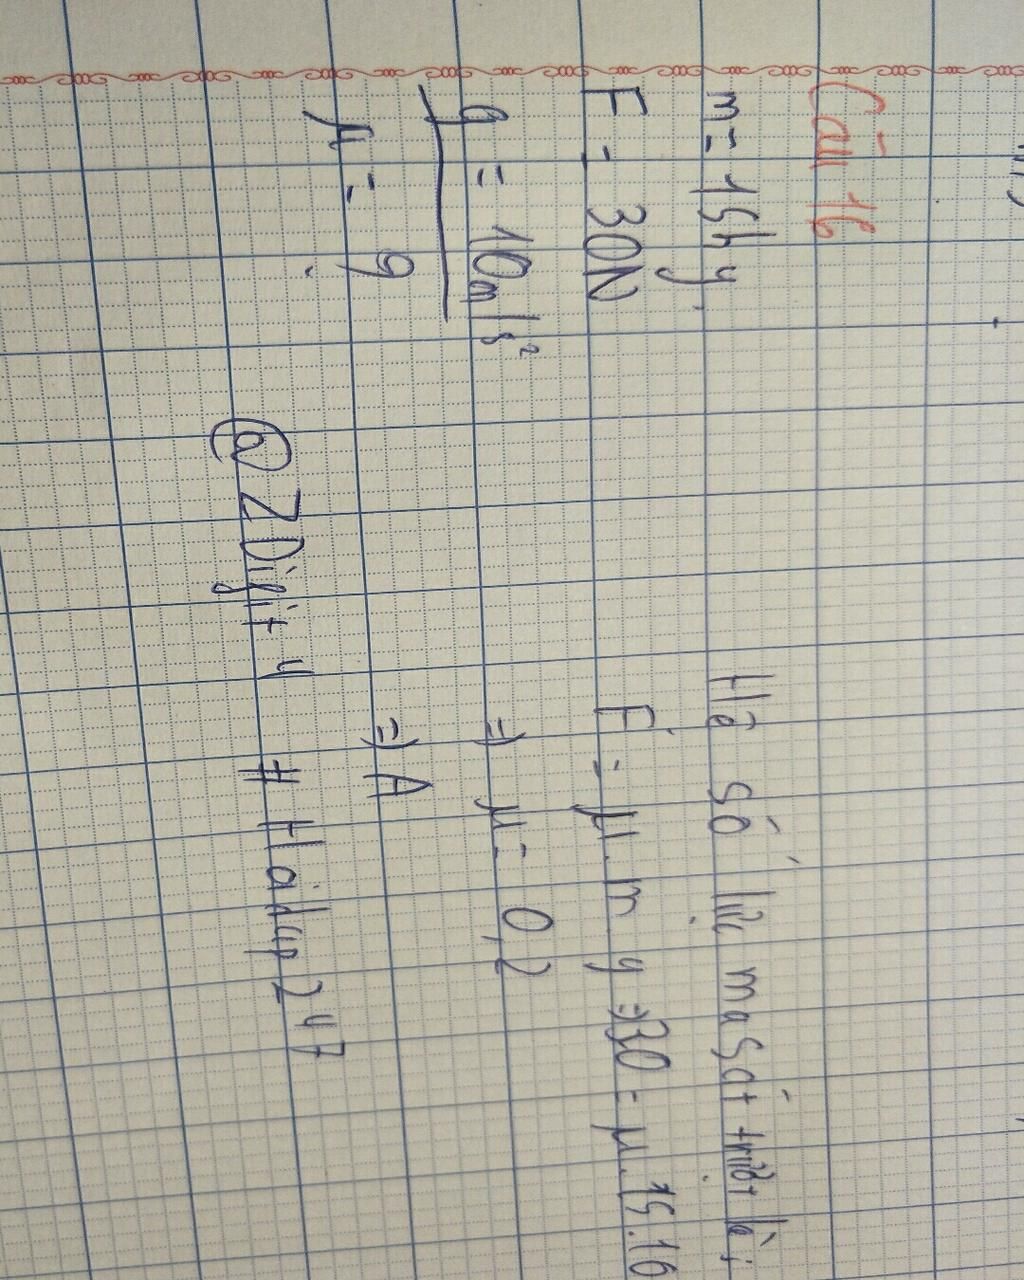 Câu 16
m = 15kg
F = 30N
g = 10m/s²
μ = ?
Hệ số lực ma sát trượt là:
F = μ.m.g => 30 = μ.15.10
=> μ = 0,2
=> A
@ZDigit4 # Hoidap247